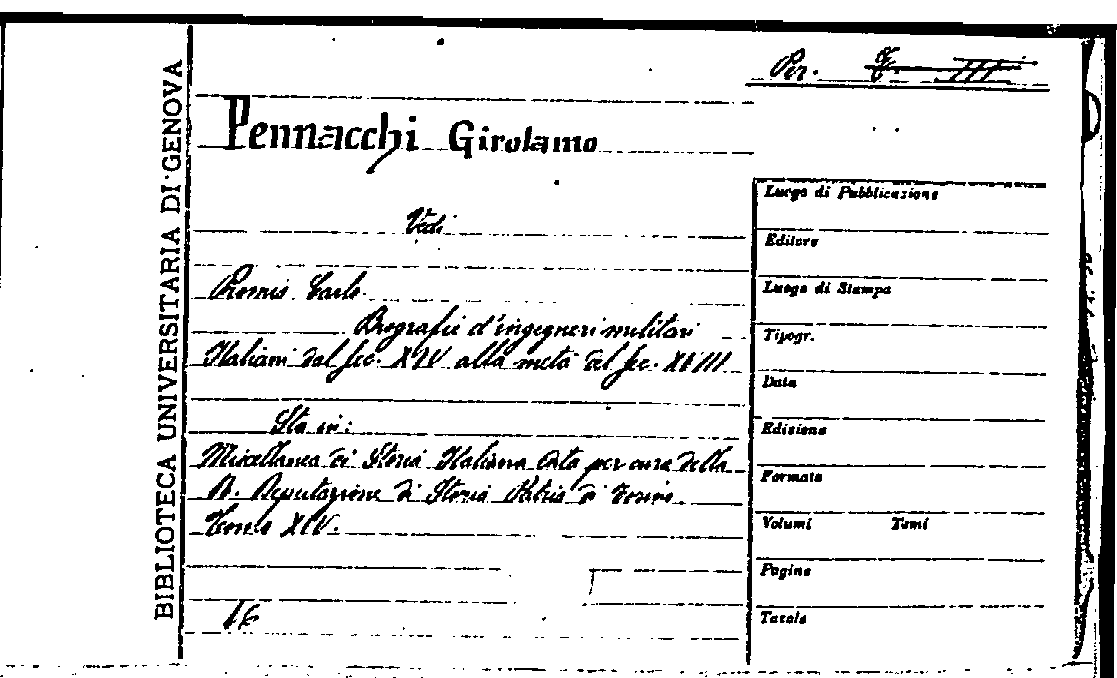 BIBLIOTECA UNIVERSITARIA DI GENOVA
Per.
Pennacchi Girolamo
Vedi
Promis Carlo.
Biografie d'ingegneri militari
Italiani dal sec. XIV alla metà del sec. XVIII
Sta in:
Miscellanea di Storia Italiana edita per cura della
R. Deputazione di Storia Patria di Torino.
Tomo XIV.
16
Luogo di Pubblicazione
Editore
Luogo di Stampa
Tipogr.
Data
Edizione
Formato
Volumi Tomi
Pagine
Tavole